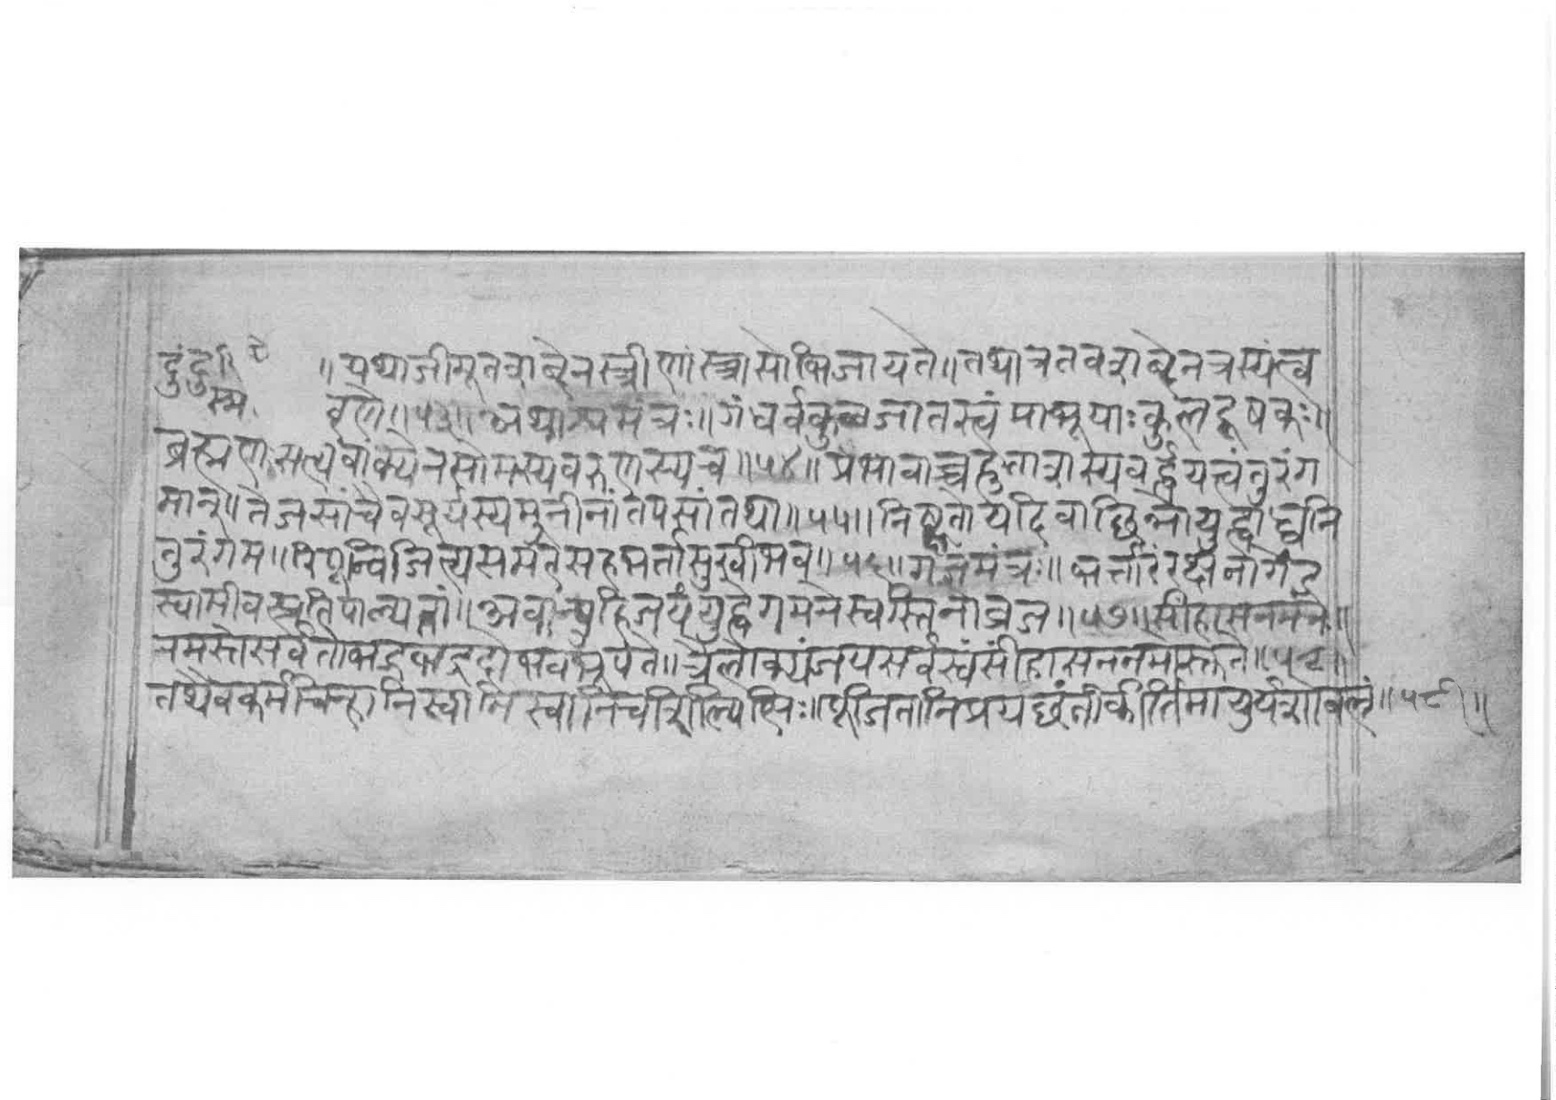 दुंदुभि ॥ यथाजीमूतशब्देनस्त्रीणांस्त्रासोभिजायते॥ तथात्रतवशब्देनत्रस्यंत्व
स्म. वृणे॥५३॥ अथाश्वमंत्रः॥ गंधर्वकुलजातस्त्वंमाभूयाःकुलदूषकः॥
ब्रह्मणःसत्यवाक्येनसोमस्यवरुणस्यच॥५४॥ प्रभावाच्चहुताशस्यवर्द्धयत्वंतुरंग
मान्॥ तेजसांचैवसूर्यस्यमुनीनांतपसांतथा॥५५॥ यदि
तुरंगम॥ रिपून्विजित्यसमरेसहभर्त्तासुखीभव॥५६॥ गजमंत्रः॥
जयंयुद्धेगमनेस्वस्तिनोव्रज॥५७॥ सींहासनमंत्रः॥
नमस्तेसर्वतोभद्रभद्रदोभवभूपते॥ त्रैलोक्यंजयसर्वस्वंसींहासननमोस्तुते॥५८॥
तथैवकर्मचिन्हानिस्वानिस्वानिचशिल्पिभिः॥ पूजितानिप्रयछंतीकीर्तिमायुर्यशोबलं॥५९॥